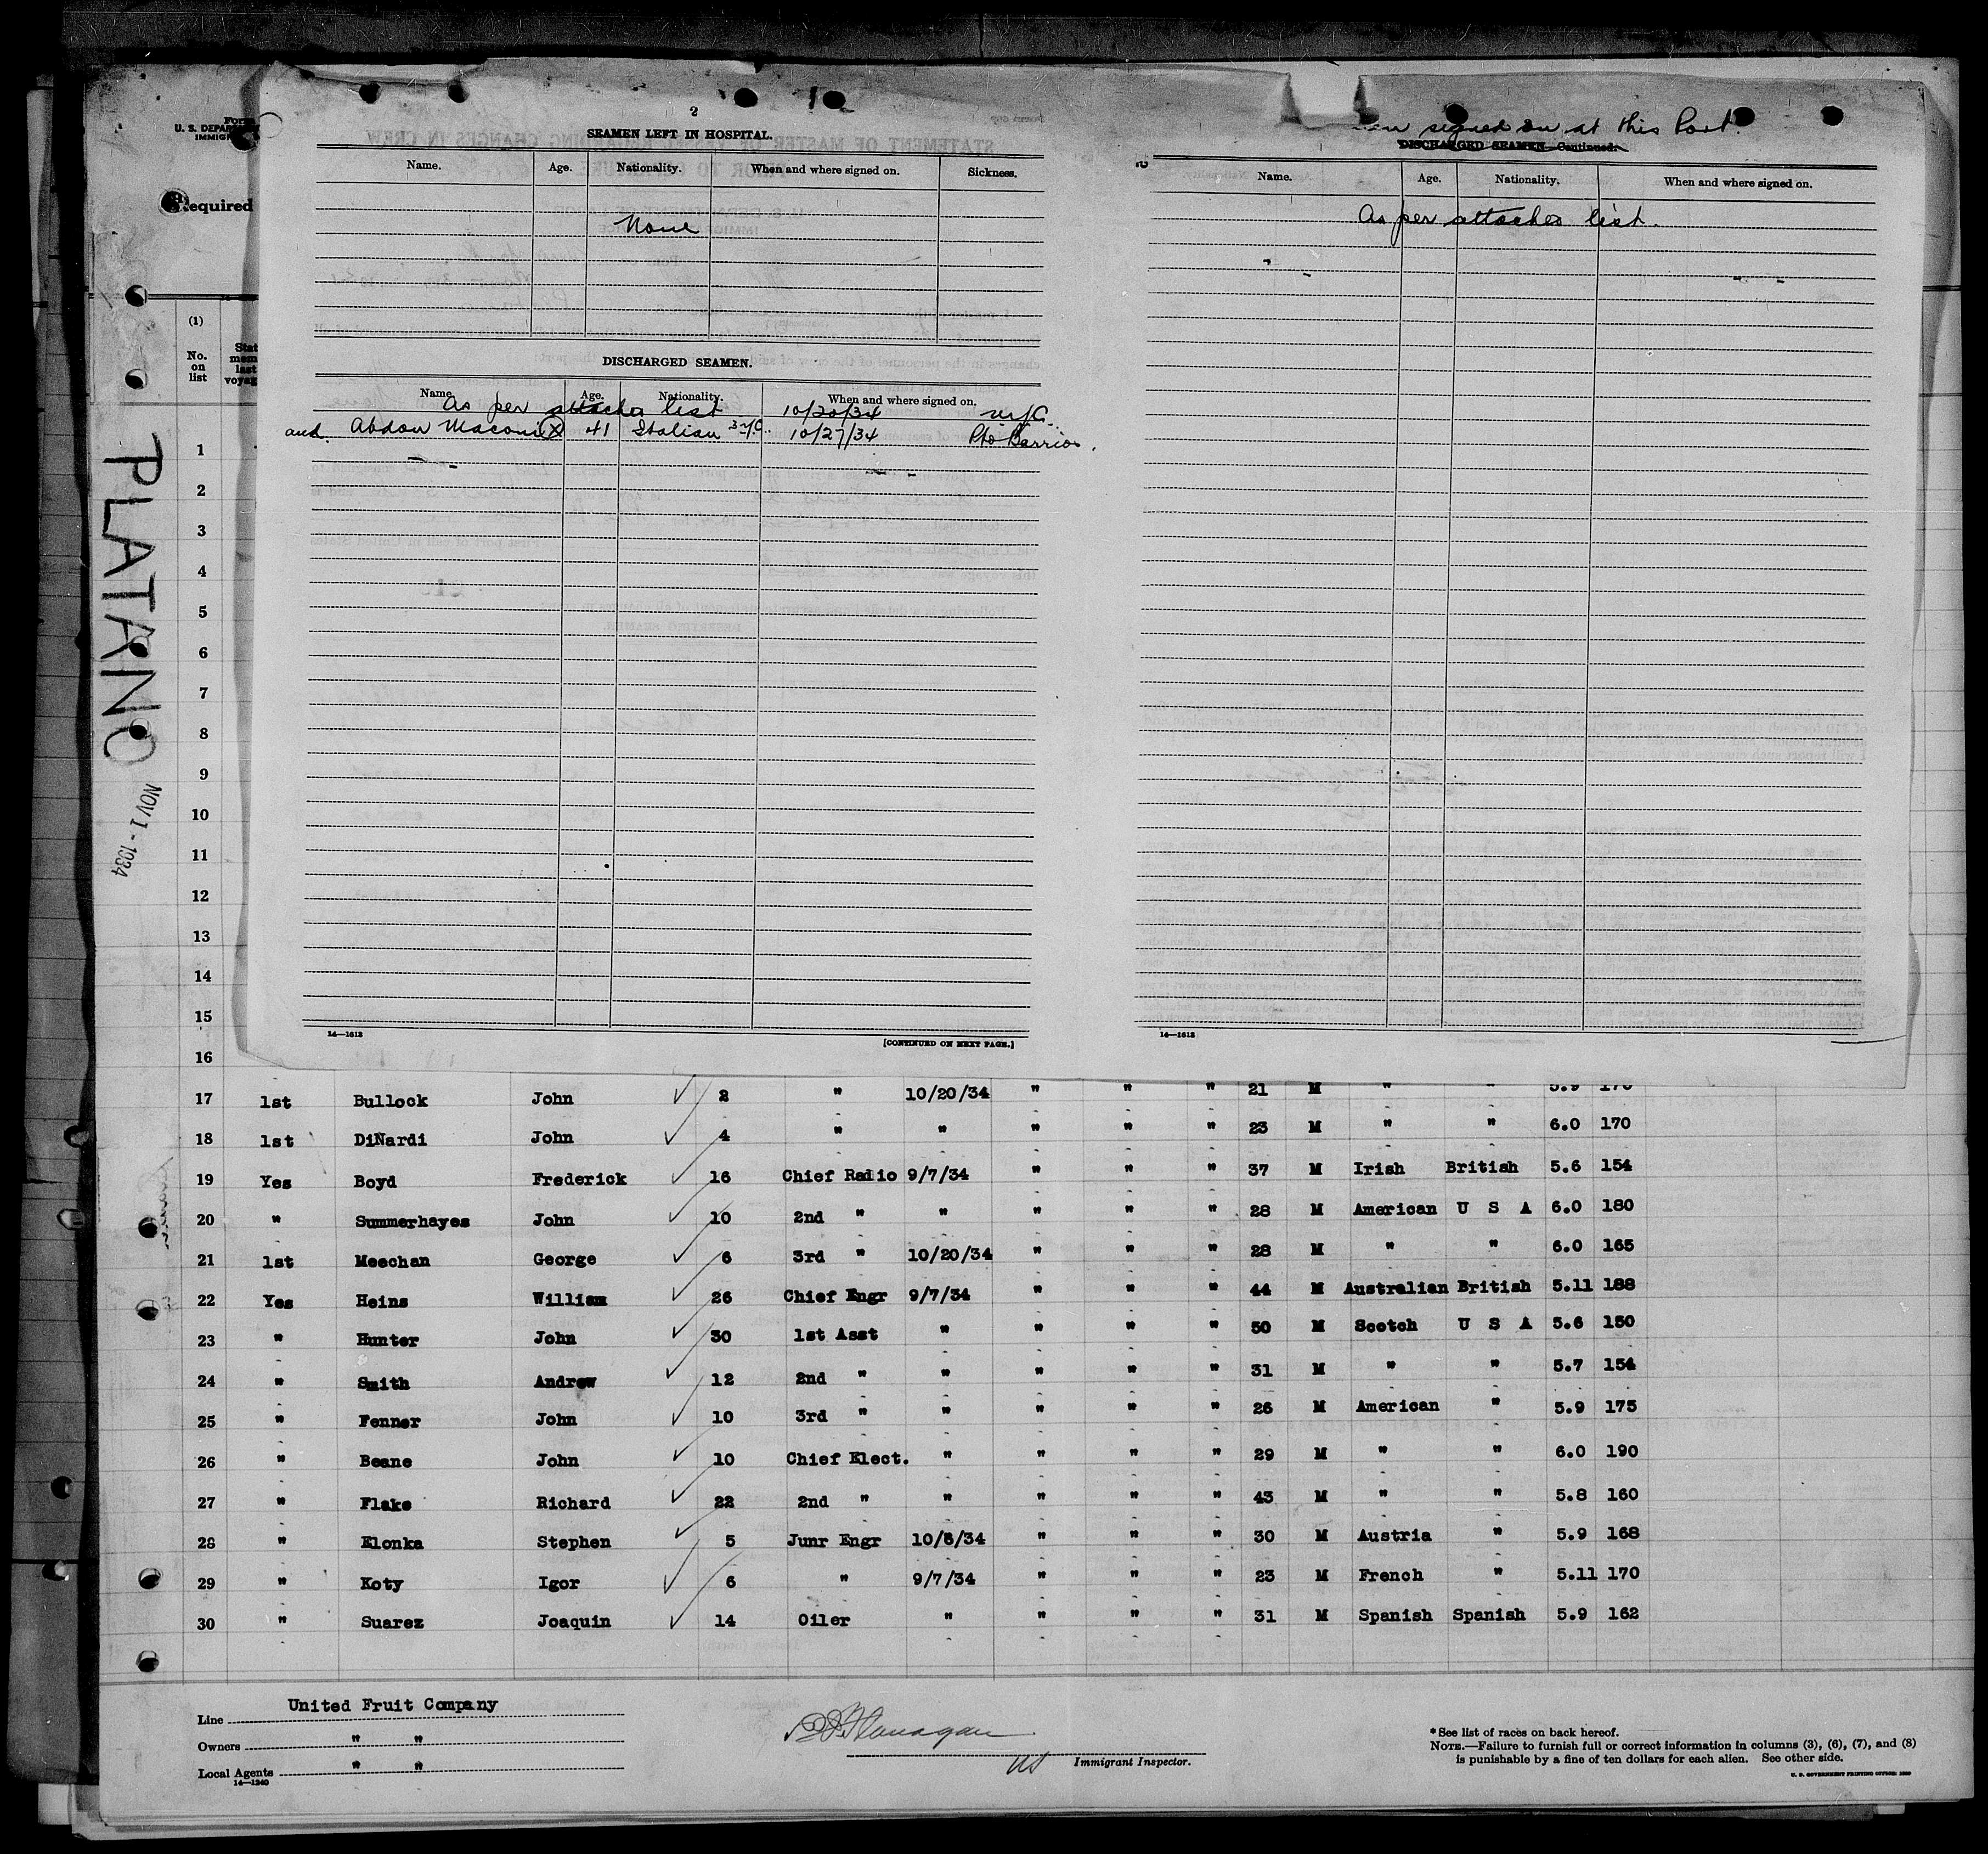 Form
U. S. DEPAR
IMMIG
Required
2
SEAMEN LEFT IN HOSPITAL
Name. Age. Nationality. When and where signed on. Sickness.
None
DISCHARGED SEAMEN.
Name. Age. Nationality. When and where signed on.
As per attached list 10/20/34 N.Y.C.
and. Abdon 41 Italian 10/27/34 Pto Barrios.
14—1613
[CONTINUED ON NEXT PAGE.]
signed on at this Port.
DISCHARGED SEAMEN—Continued.
2
Name. Age. Nationality. When and where signed on.
As per attached list.
14—1613
(1)
No. on list
Stat
mem
last
voyag
PLATANO
NOV 1 - 1934
1
2
3
4
5
6
7
8
9
10
11
12
13
14
15
16
17 1st Bullock John 2 " 10/20/34 " " " 21 M " " 5.9 170
18 1st DiNardi John 4 " " " " " 23 M " " 6.0 170
19 Yes Boyd Frederick 16 Chief Radio 9/7/34 " " " 37 M Irish British 5.6 154
20 " Summerhayes John 10 2nd " " " " " 28 M American U S A 6.0 180
21 1st Meechan George 6 3rd " 10/20/34 " " " 28 M " " 6.0 165
22 Yes Heins William 26 Chief Engr 9/7/34 " " " 44 M Australian British 5.11 188
23 " Hunter John 30 1st Asst " " " " 50 M Scotch U S A 5.6 150
24 " Smith Andrew 12 2nd " " " " " 31 M " " 5.7 154
25 " Fenner John 10 3rd " " " " " 26 M American " 5.9 175
26 " Beane John 10 Chief Elect. " " " " 29 M " " 6.0 190
27 " Flake Richard 22 2nd " " " " " 43 M " " 5.8 160
28 " Elonka Stephen 5 Junr Engr 10/8/34 " " " 30 M Austria " 5.9 168
29 " Koty Igor 6 " 9/7/34 " " " 23 M French " 5.11 170
30 " Suarez Joaquin 14 Oiler " " " " 31 M Spanish Spanish 5.9 162
Line United Fruit Company
Owners " "
Local Agents " "
14—1240
Flanagan
Immigrant Inspector.
* See list of races on back hereof.
NOTE.—Failure to furnish full or correct information in columns (3), (6), (7), and (8)
is punishable by a fine of ten dollars for each alien. See other side.